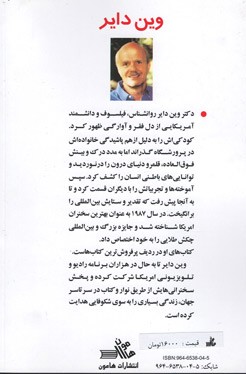 وین دایر
دکتر وین دایر روانشناس، فیلسوف و دانشمند
آمریکایی از دل فقر و آوارگی ظهور کرد.
کودکی‌اش را به دلیل ازهم پاشیدگی خانواده‌اش
در پرورشگاه گذراند اما به مدد درک و بینش
فوق‌العاده، قلمرو دنیای درون را درنوردید و
توانایی‌های باطنی انسان را کشف کرد. سپس
آموخته‌ها و تجربیاتش را با دیگران قسمت کرد و تا
به آنجا پیش رفت که تقدیر و ستایش بین‌المللی را
برانگیخت. در سال ۱۹۸۷ به عنوان بهترین سخنران
امریکا شناخته شد و جایزه بزرگ و بین‌المللی
چکش طلایی را به خود اختصاص داد.
کتاب‌های او در ردیف پرفروش‌ترین کتاب‌هاست.
وین دایر تا به حال در هزاران برنامه رادیو و
تلویزیونی امریکا شرکت کرده و پخش
سخنرانی‌هایش از طریق نوار و کتاب در سرتاسر
جهان، زندگی بسیاری را به سوی شکوفایی هدایت
کرده است.
هامون
انتشارات هامون
قیمت: ۱۶۰۰۰تومان
ISBN:964-6538-04-5
شابک: ۵-۰۴-۶۵۳۸-۹۶۴